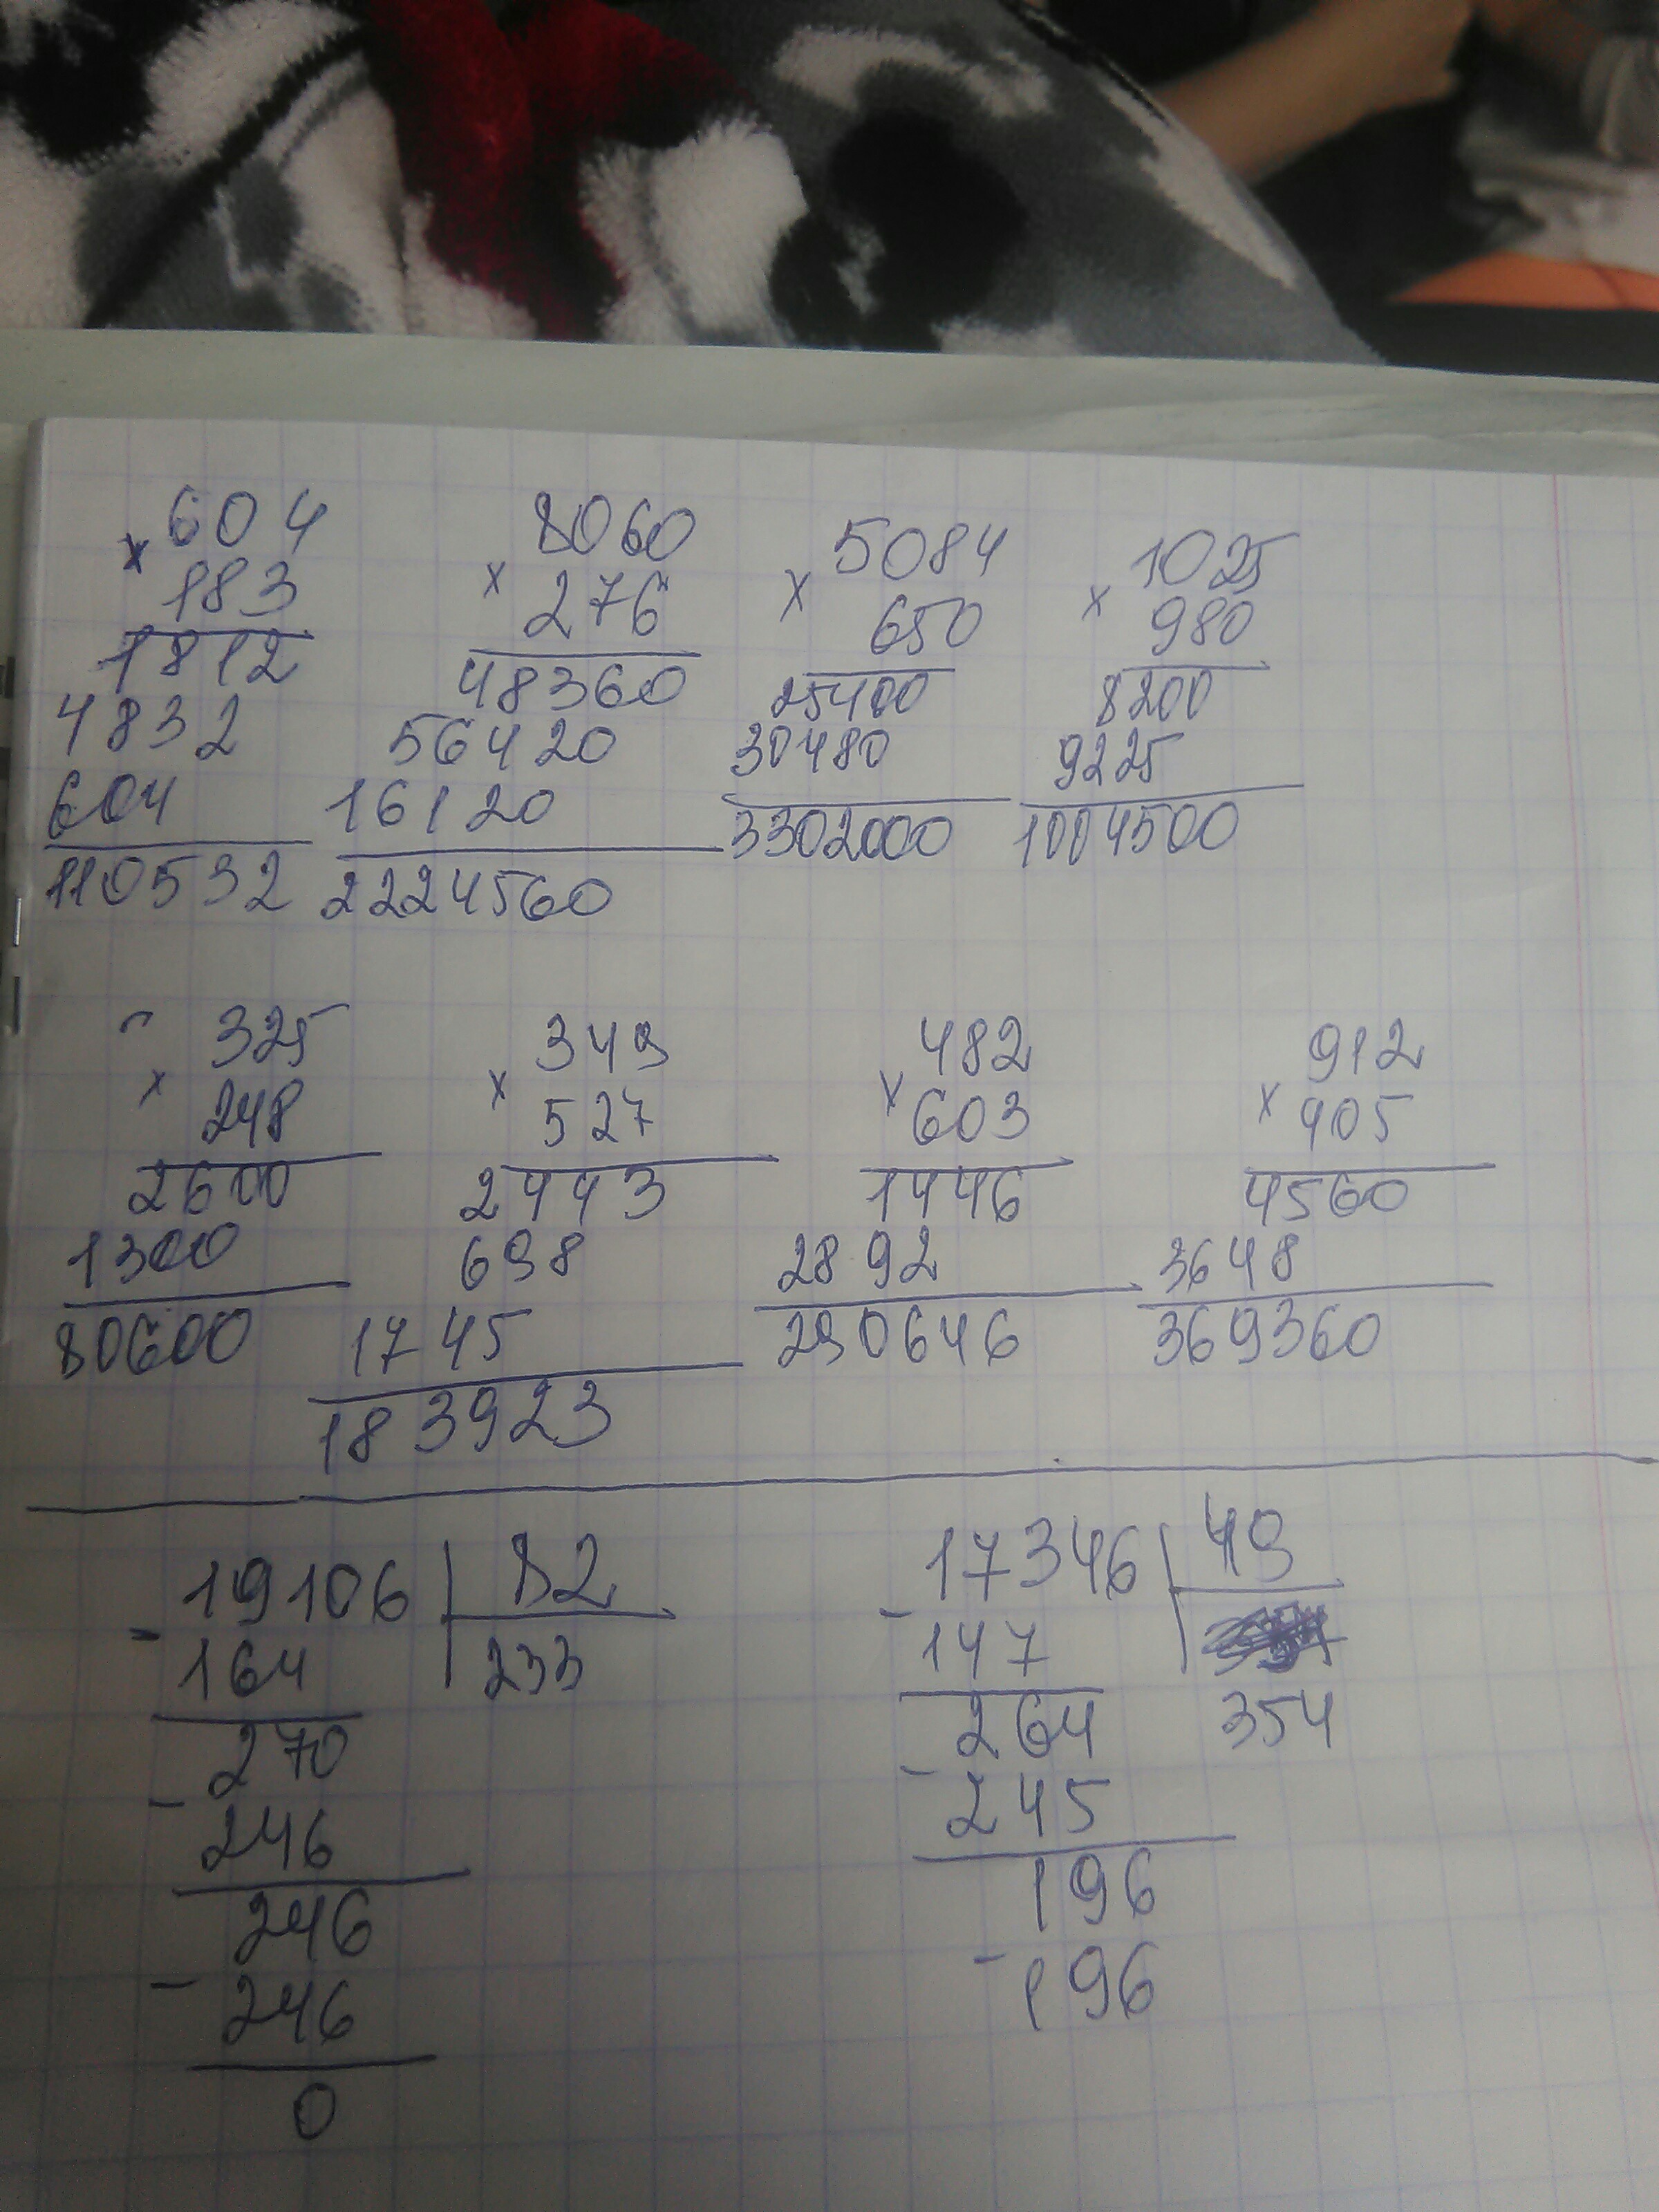 604
× 183
1812
4832
604
110532
8060
× 276
48360
56420
16120
2224560
5084
× 650
25400
30480
3302000
1025
× 980
8200
9225
1004500
325
× 248
2600
1300
80600
349
× 527
2443
698
1745
183923
482
× 603
1446
2892
290646
912
× 405
4560
3648
369360
19106 | 82
- 164 233
270
- 246
246
- 246
0
17346 | 49
- 147
264 354
- 245
196
- 196